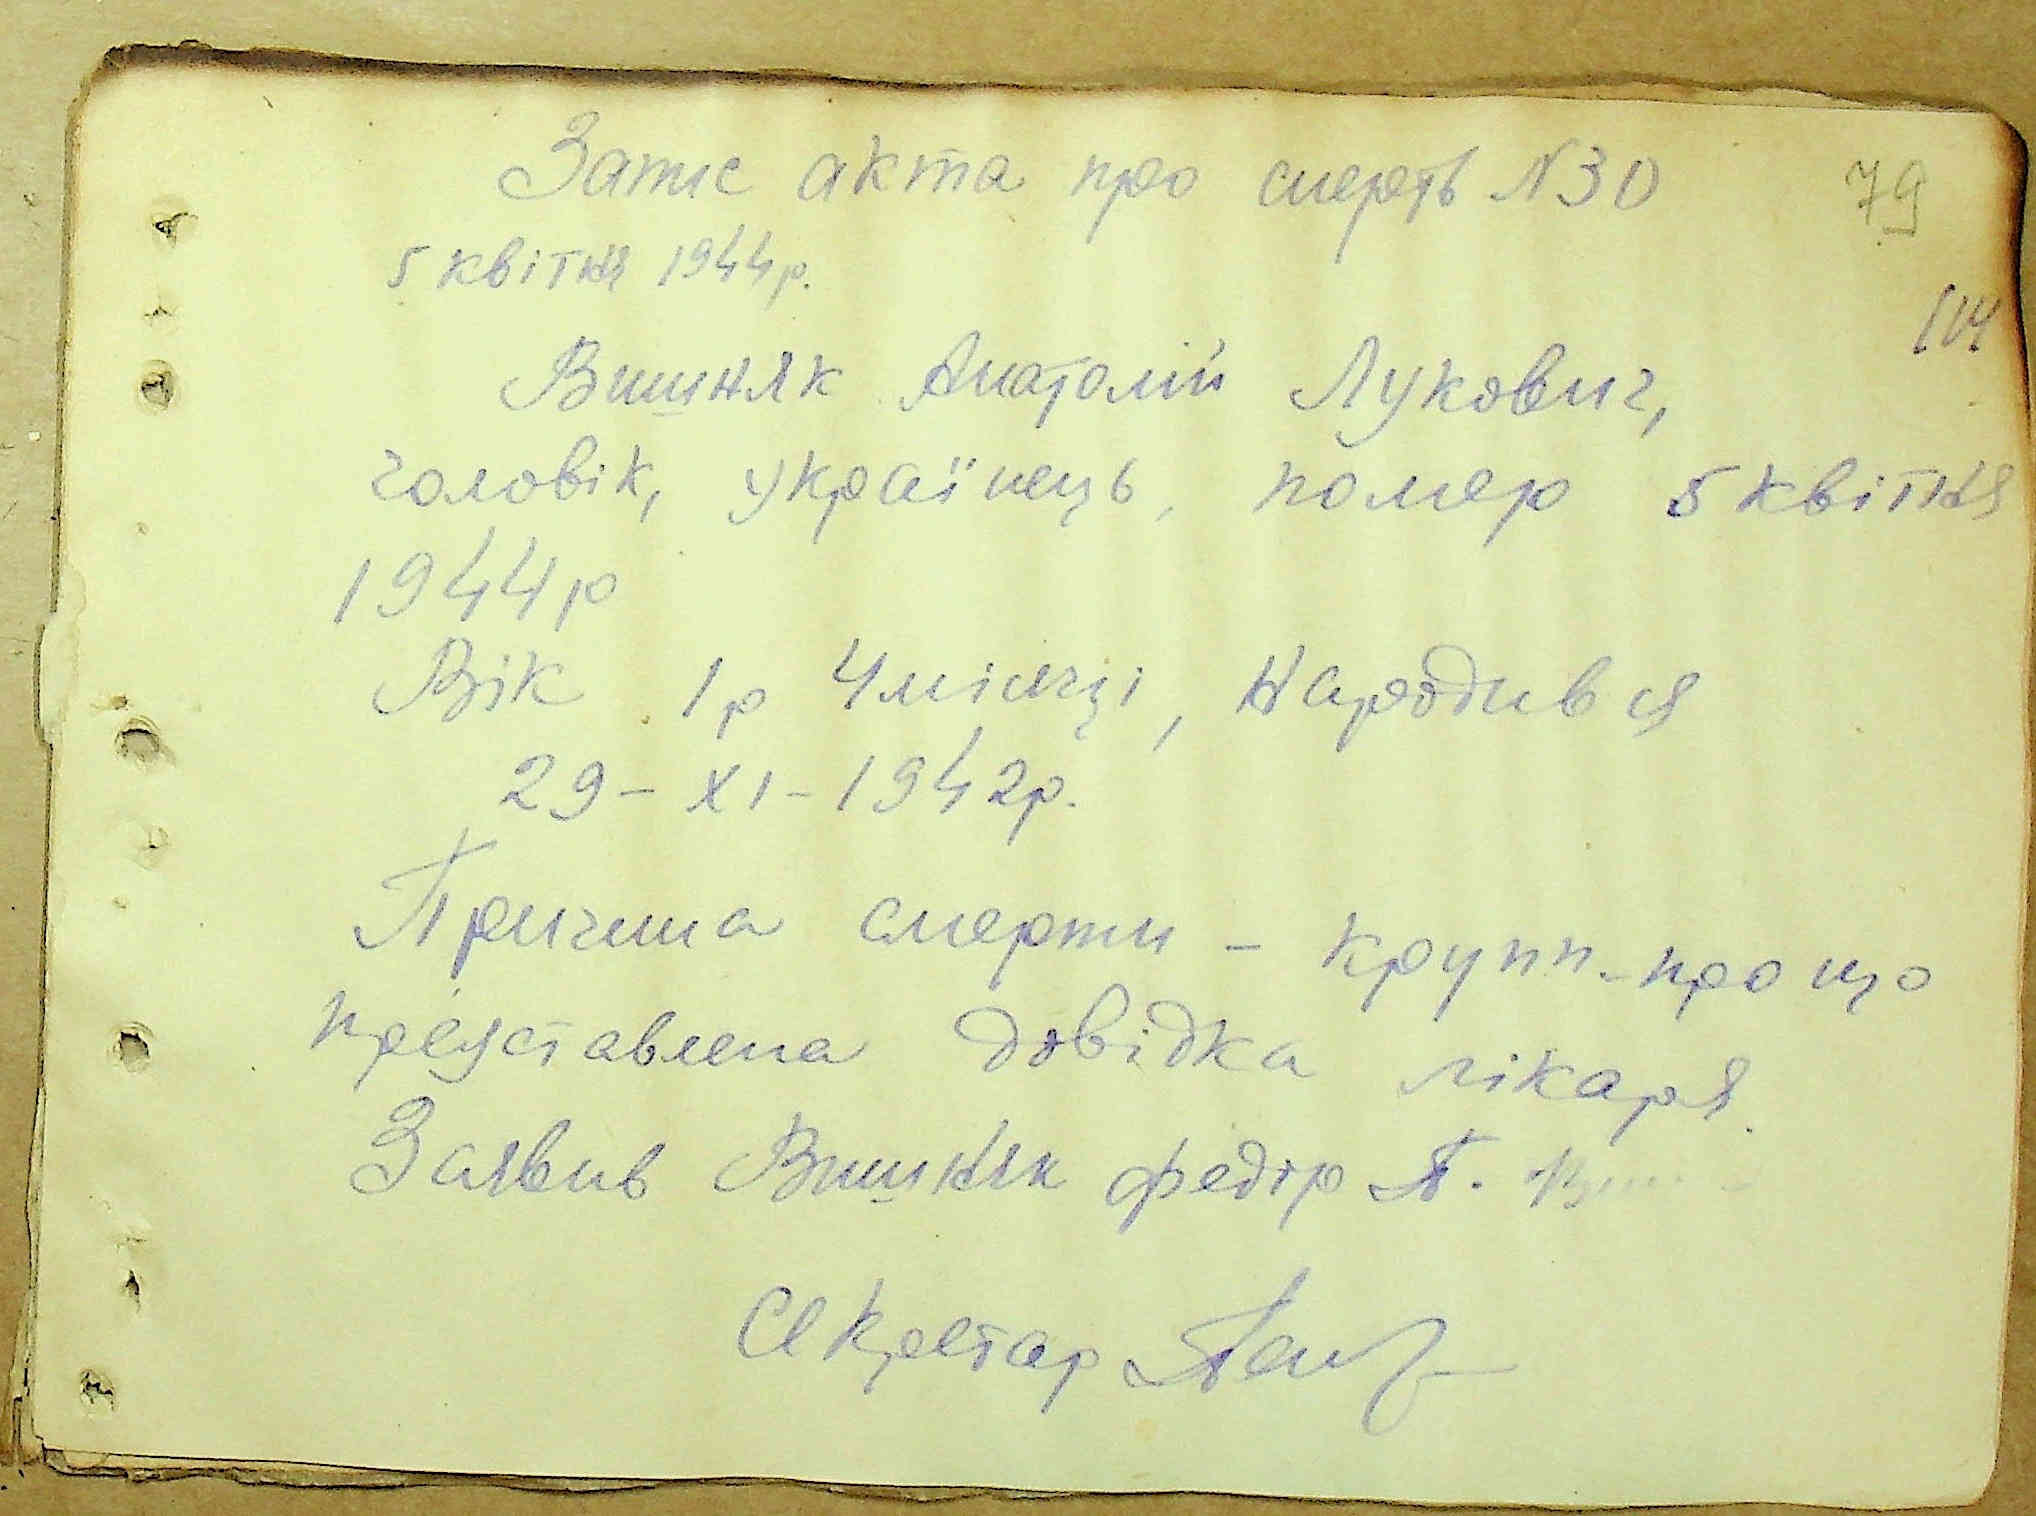 Запис акта про смерть N30
79
5 квітня 1944р.
114
Вишняк Анатолій Лукович,
чоловік, українець, помер 5 квітня
1944р
Вік 1р 4 місяці, Народився
29-XI-1942р.
Причина смерти - крупп-про що
представлена довідка лікаря.
Заявив Вишняк Федір П.
Секретар